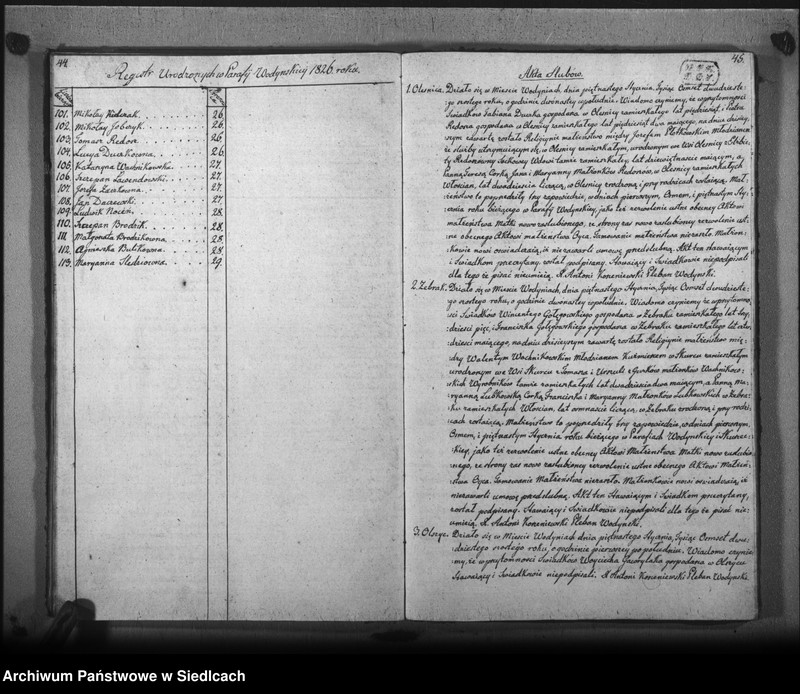 44
Regestr Urodzonych w Parafii Wodyńskiey 1826. roku.
101. Mikołay Kuderak 26.
102. Mikołay Jobczyk 26.
103. Toman Redos 26
104. Łucya Duczkowna 26.
105. Katarzyna Wachnikowska 27.
106. Szczepan Lewendowski 27.
107. Jozefa Zaczkowna 27.
108. Jan Daczewski 27
109. Ludwik Nocen 28.
110. Szczepan Brodzik 28.
111. Małgorzata Brodzikowna 28.
112. Agnieszka Bulikowna 28.
113. Maryanna Sledziowna 29.
45.
Akta Slubow.
1. Olesnica. Działo się w Mieście Wodyniach, dnia piętnastego Stycznia, Tysiąc Osmset dwudzieste-
go szostego roku, o godzinie dwunastey z południa. Wiadomo czyniemy, że w przytomności
Swiadkow Fabiana Duczka gospodarza w Olesnicy zamieszkałego lat pięćdziesiąt, i
Redosa gospodarza w Olesnicy zamieszkałego lat pięćdziesiąt dwa maiącego, na dniu dzisiey-
szym zawarte zostało Religiynie małżenstwo między Jozefem Młodzianem
ze służby utrzymuiącym się, w Olesnicy zamieszkałym, urodzonym we Wsi Olesnicy z
Wdowi tamże zamieszkałey, lat dziewiętnaście maiącym, a
Panną Teresą Corką Jana i Maryanny Małżonkow Redosow, w Olesnicy zamieszkałych
Włościan, lat dwadzieścia liczącą, w Olesnicy zrodzoną i przy rodzicach zostaiącą. Mał-
żeństwo to poprzedziły trzy zapowiedzie, w dniach pierwszym, Osmem, i piętnastym Sty-
cznia roku bieżącego w Parafii Wodyńskiey, jako też zezwolenie ustne obecney Aktowi
małżeństwa Matki nowo zaslubionego, ze strony zas nowo zaslubioney zezwolenie ust-
ne obecnego Aktowi małżeństwa Oyca. Tamowanie małżeństwa nie zaszło. Małżon-
kowie nowi oswiadczaią, iż nie zawarli umowy przedslubney. Akt ten stawaiącym
i Swiadkom przeczytany, został podpisany. Stawaiący i Swiadkowie niepodpisali
dla tego że pisać nieumieią. X. Antoni Korzeniewski Pleban Wodyński.
2. Zebrak. Działo się w Mieście Wodyniach, dnia piętnastego Stycznia, Tysiąc Osmset dwudzieste-
go szostego roku, o godzinie dwunastey z południa. Wiadomo czyniemy że w przytomno-
ści Swiadkow Wincentego Gołęgowskiego gospodarza w Zebraku zamieszkałego lat trzy-
dzieści pięć, i Franciszka Gołęgowskiego gospodarza w Zebraku zamieszkałego lat
dzieści maiącego, na dniu dzisieyszym zawarte zostało Religiynie małżeństwo mię-
dzy Walentym Wachnikowskim Młodzianem w Skurcu zamieszkałym
urodzonym we Wsi Skurcu z Tomasza i Urszuli z małżonkow Wachnikow-
skich Wyrobnikow tamże zamieszkałych lat dwadzieścia dwa maiącym, a Panną Ma-
ryanną Lubkowską Corką Franciszka i Maryanny Małżonkow Lubkowskich w Zebra-
ku zamieszkałych Włościan, lat liczącą, w Zebraku zrodzoną i przy rodzi-
cach zostaiącą. Małżeństwo to poprzedziły trzy zapowiedzie, w dniach pierwszym,
Osmem, i piętnastym Stycznia roku bieżącego w Parafiach Wodyńskiey i Skurzec-
kiey, jako też zezwolenie ustne obecney Aktowi Małżeństwa Matki nowo zaslubio-
nego, ze strony zas nowo zaslubioney zezwolenie ustne obecnego Aktowi Małżeń-
stwa Oyca. Tamowanie Małżeństwa niezaszło. Małżonkowie nowi oswiadczaią iż
niezawarli umowy przedslubney. Akt ten Stawaiącym i Swiadkom przeczytany,
został podpisany. Stawaiący i Swiadkowie niepodpisali dla tego że pisać nie-
umieią. X. Antoni Korzeniewski Pleban Wodyński.
3. Olszyc. Działo się w Mieście Wodyniach dnia piętnastego Stycznia, Tysiąc Osmset dwu-
dziestego szostego roku, o godzinie pierwszey po południu. Wiadomo czynie-
my, że w przytomności Swiadkow Woyciecha Gawrylaka gospodarza w Olszycu
Stawaiący i Swiadkowie niepodpisali. X Antoni Korzeniewski Pleban Wodyński
Archiwum Państwowe w Siedlcach